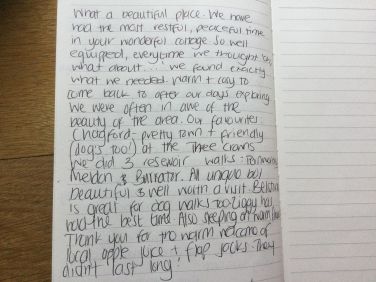 What a beautiful place. We have
had the most restful, peaceful time
in your wonderful cottage so well
equipped, everytime we thought 'oh,
what about...' we found exactly
what we needed. Warm + cosy to
come back to after our days exploring
We were often in awe of the
beauty of the area. Our favourites:
Chagford - pretty town + friendly
(dogs too!) at the Three Crowns
We did 3 reservoir walks:
Meldon & Burrator. All
beautiful & well worth a visit.
is great for dog walks too Ziggy has
had the best time. Also sleeping
Thank you for the warm welcome of
local apple juice + flap jacks. They
didn't last long!